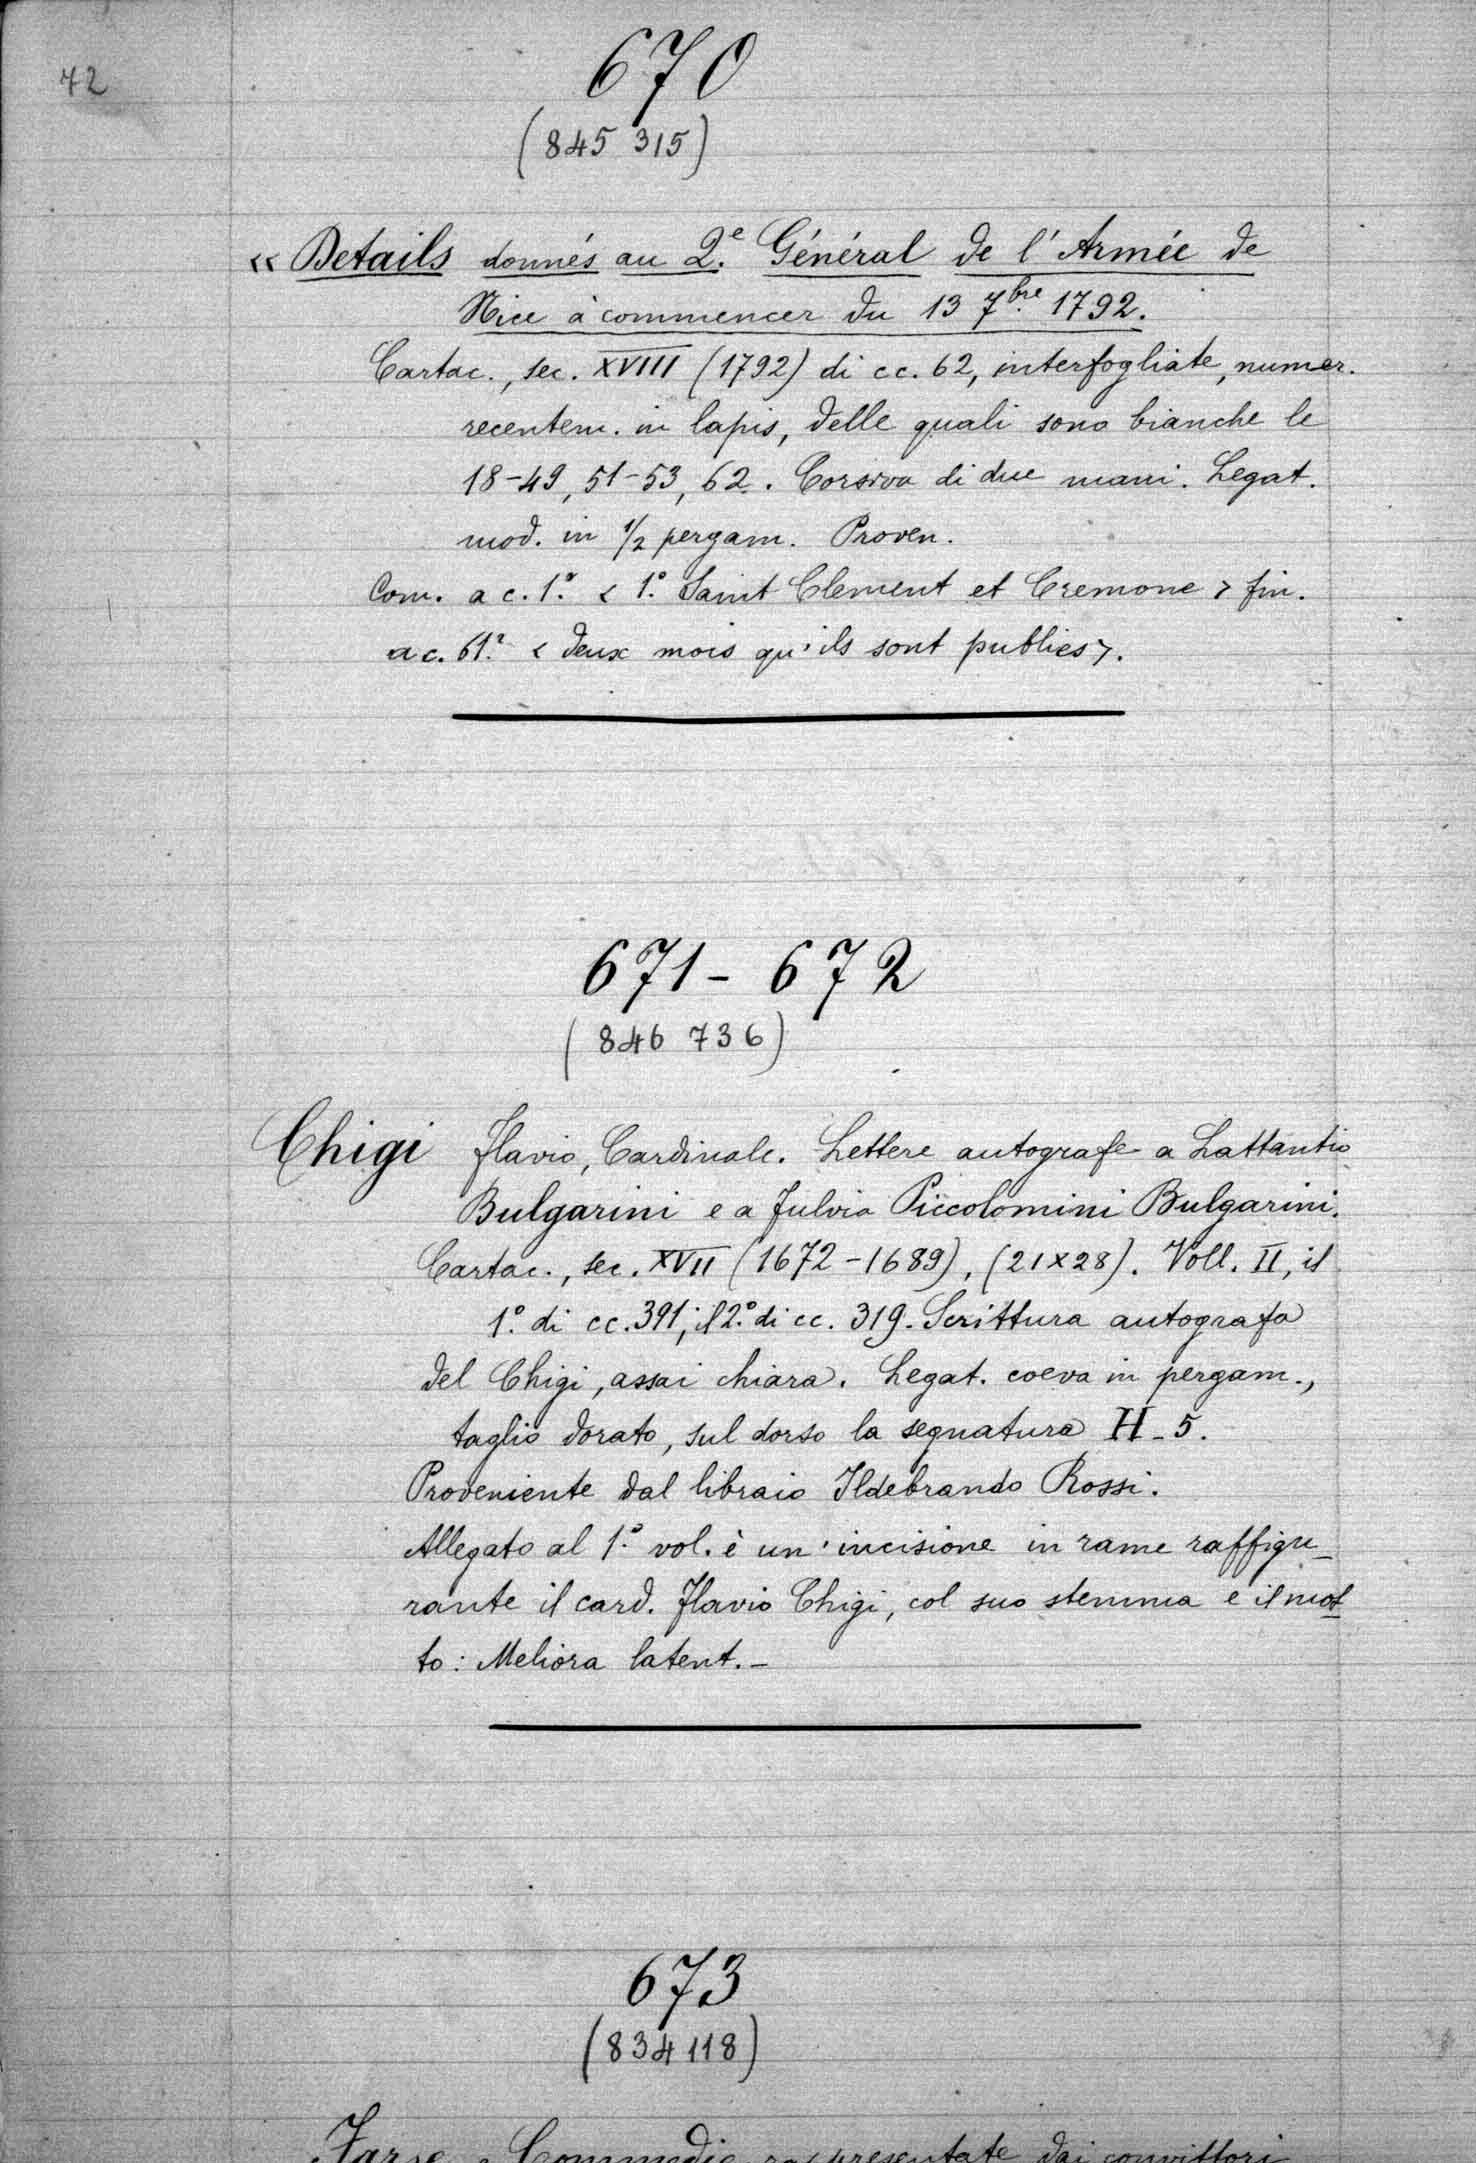 42
670
(845 315)
« Details donnés au Q.e Général de l'Armée de
Nice à commencer du 13 7.bre 1792.
Cartac., sec. XVIII (1792) di cc. 62, interfogliate, numer.
recentem. in lapis, delle quali sono bianche le
18-49, 51-53, 62. Corsiva di due mani. Legat.
mod. in 1/2 pergam. Proven.
Com. a c. 1.r < 1.° Saint Clement et Cremone > fin.
a c. 61.r < deux mois qu'ils sont publies >.
671 - 672
(846 736)
Chigi Flavio, Cardinale. Lettere autografe a Lattantio
Bulgarini e a Fulvia Piccolomini Bulgarini.
Cartac., sec. XVII (1672-1689), (21x28). Voll. II, il
1.° di cc. 391; il 2.° di cc. 319. Scrittura autografa
del Chigi, assai chiara. Legat. coeva in pergam.,
taglio dorato, sul dorso la segnatura H-5.
Proveniente dal libraio Ildebrando Rossi.
Allegato al 1.° vol. è un'incisione in rame raffigu-
rante il card. Flavio Chigi, col suo stemma e il mot
to: Meliora latent. -
673
(834 118)
Farse e Commedie rappresentate dai convittori